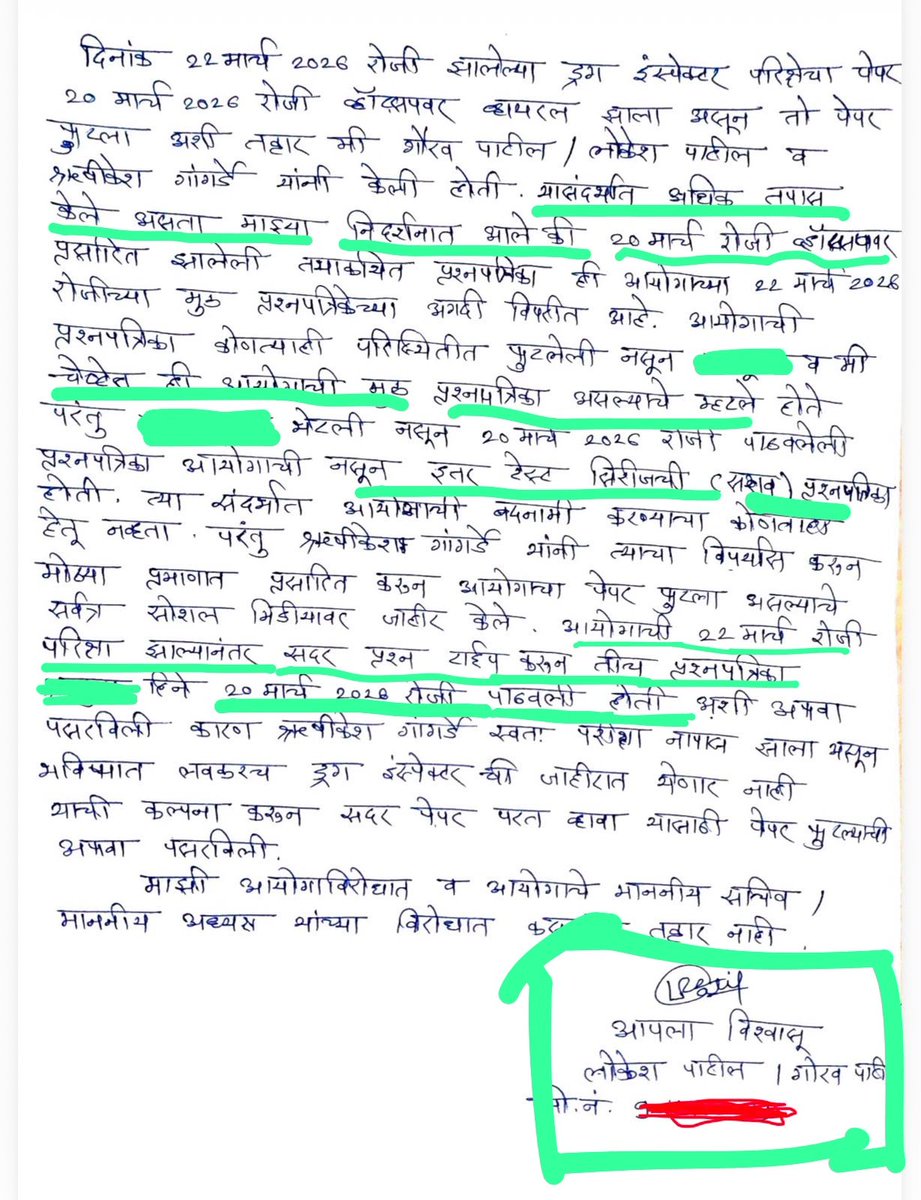 दिनांक 22 मार्च 2026 रोजी झालेल्या ड्रग इंस्पेक्टर परिक्षेचा पेपर
20 मार्च 2026 रोजी व्हॉट्सपवर व्हायरल झाला असून तो पेपर
फुटला अशी तक्रार मी गौरव पाटील / लोकेश पाटील व
ऋषीकेश गांगर्डे यांनी केली होती. यासंदर्भात अधिक तपास
केले असता माझ्या निदर्शनात आले की 20 मार्च रोजी व्हॉट्सपवर
प्रसारित झालेली तथाकथित प्रश्नपत्रिका ही आयोगाच्या 22 मार्च 2026
रोजीच्या मुळ प्रश्नपत्रिकेच्या अगदी विपरीत आहे. आयोगाची
प्रश्नपत्रिका कोणत्याही परिस्थितीत फुटलेली नसून व मी
ही आयोगाची मुळ प्रश्नपत्रिका असल्याचे म्हटले होते
परंतु भेटली नसून 20 मार्च 2026 रोजी पाठवलेली
प्रश्नपत्रिका आयोगाची नसून इतर टेस्ट सिरीजची (सराव) प्रश्नपत्रिका
होती. त्या संदर्भात आयोगाची बदनामी करण्याचा कोणताही
हेतू नव्हता. परंतु ऋषीकेश गांगर्डे यांनी त्याचा विपर्यास करून
मोठ्या प्रमाणात प्रसारित करून आयोगाचा पेपर फुटला असल्याचे
सर्वत्र सोशल मिडीयावर जाहीर केले. आयोगाची 22 मार्च रोजी
परिक्षा झाल्यानंतर सदर प्रश्न टाईप करून तीच प्रश्नपत्रिका
हिने 20 मार्च 2026 रोजी पाठवली होती अशी अफवा
पसरविली कारण ऋषीकेश गांगर्डे स्वतः परीक्षा नापास झाला असून
भविष्यात लवकरच ड्रग इंस्पेक्टर ची जाहीरात येणार नाही
याची कल्पना करून सदर पेपर परत व्हावा यासाठी पेपर फुटल्याची
अफवा पसरविली.
माझी आयोगाविरोधात व आयोगाचे माननीय सचिव /
माननीय अध्यक्ष यांच्या विरोधात तक्रार नाही.
आपला विश्वासू
लोकेश पाटील / गौरव पाटी
मो.नं.